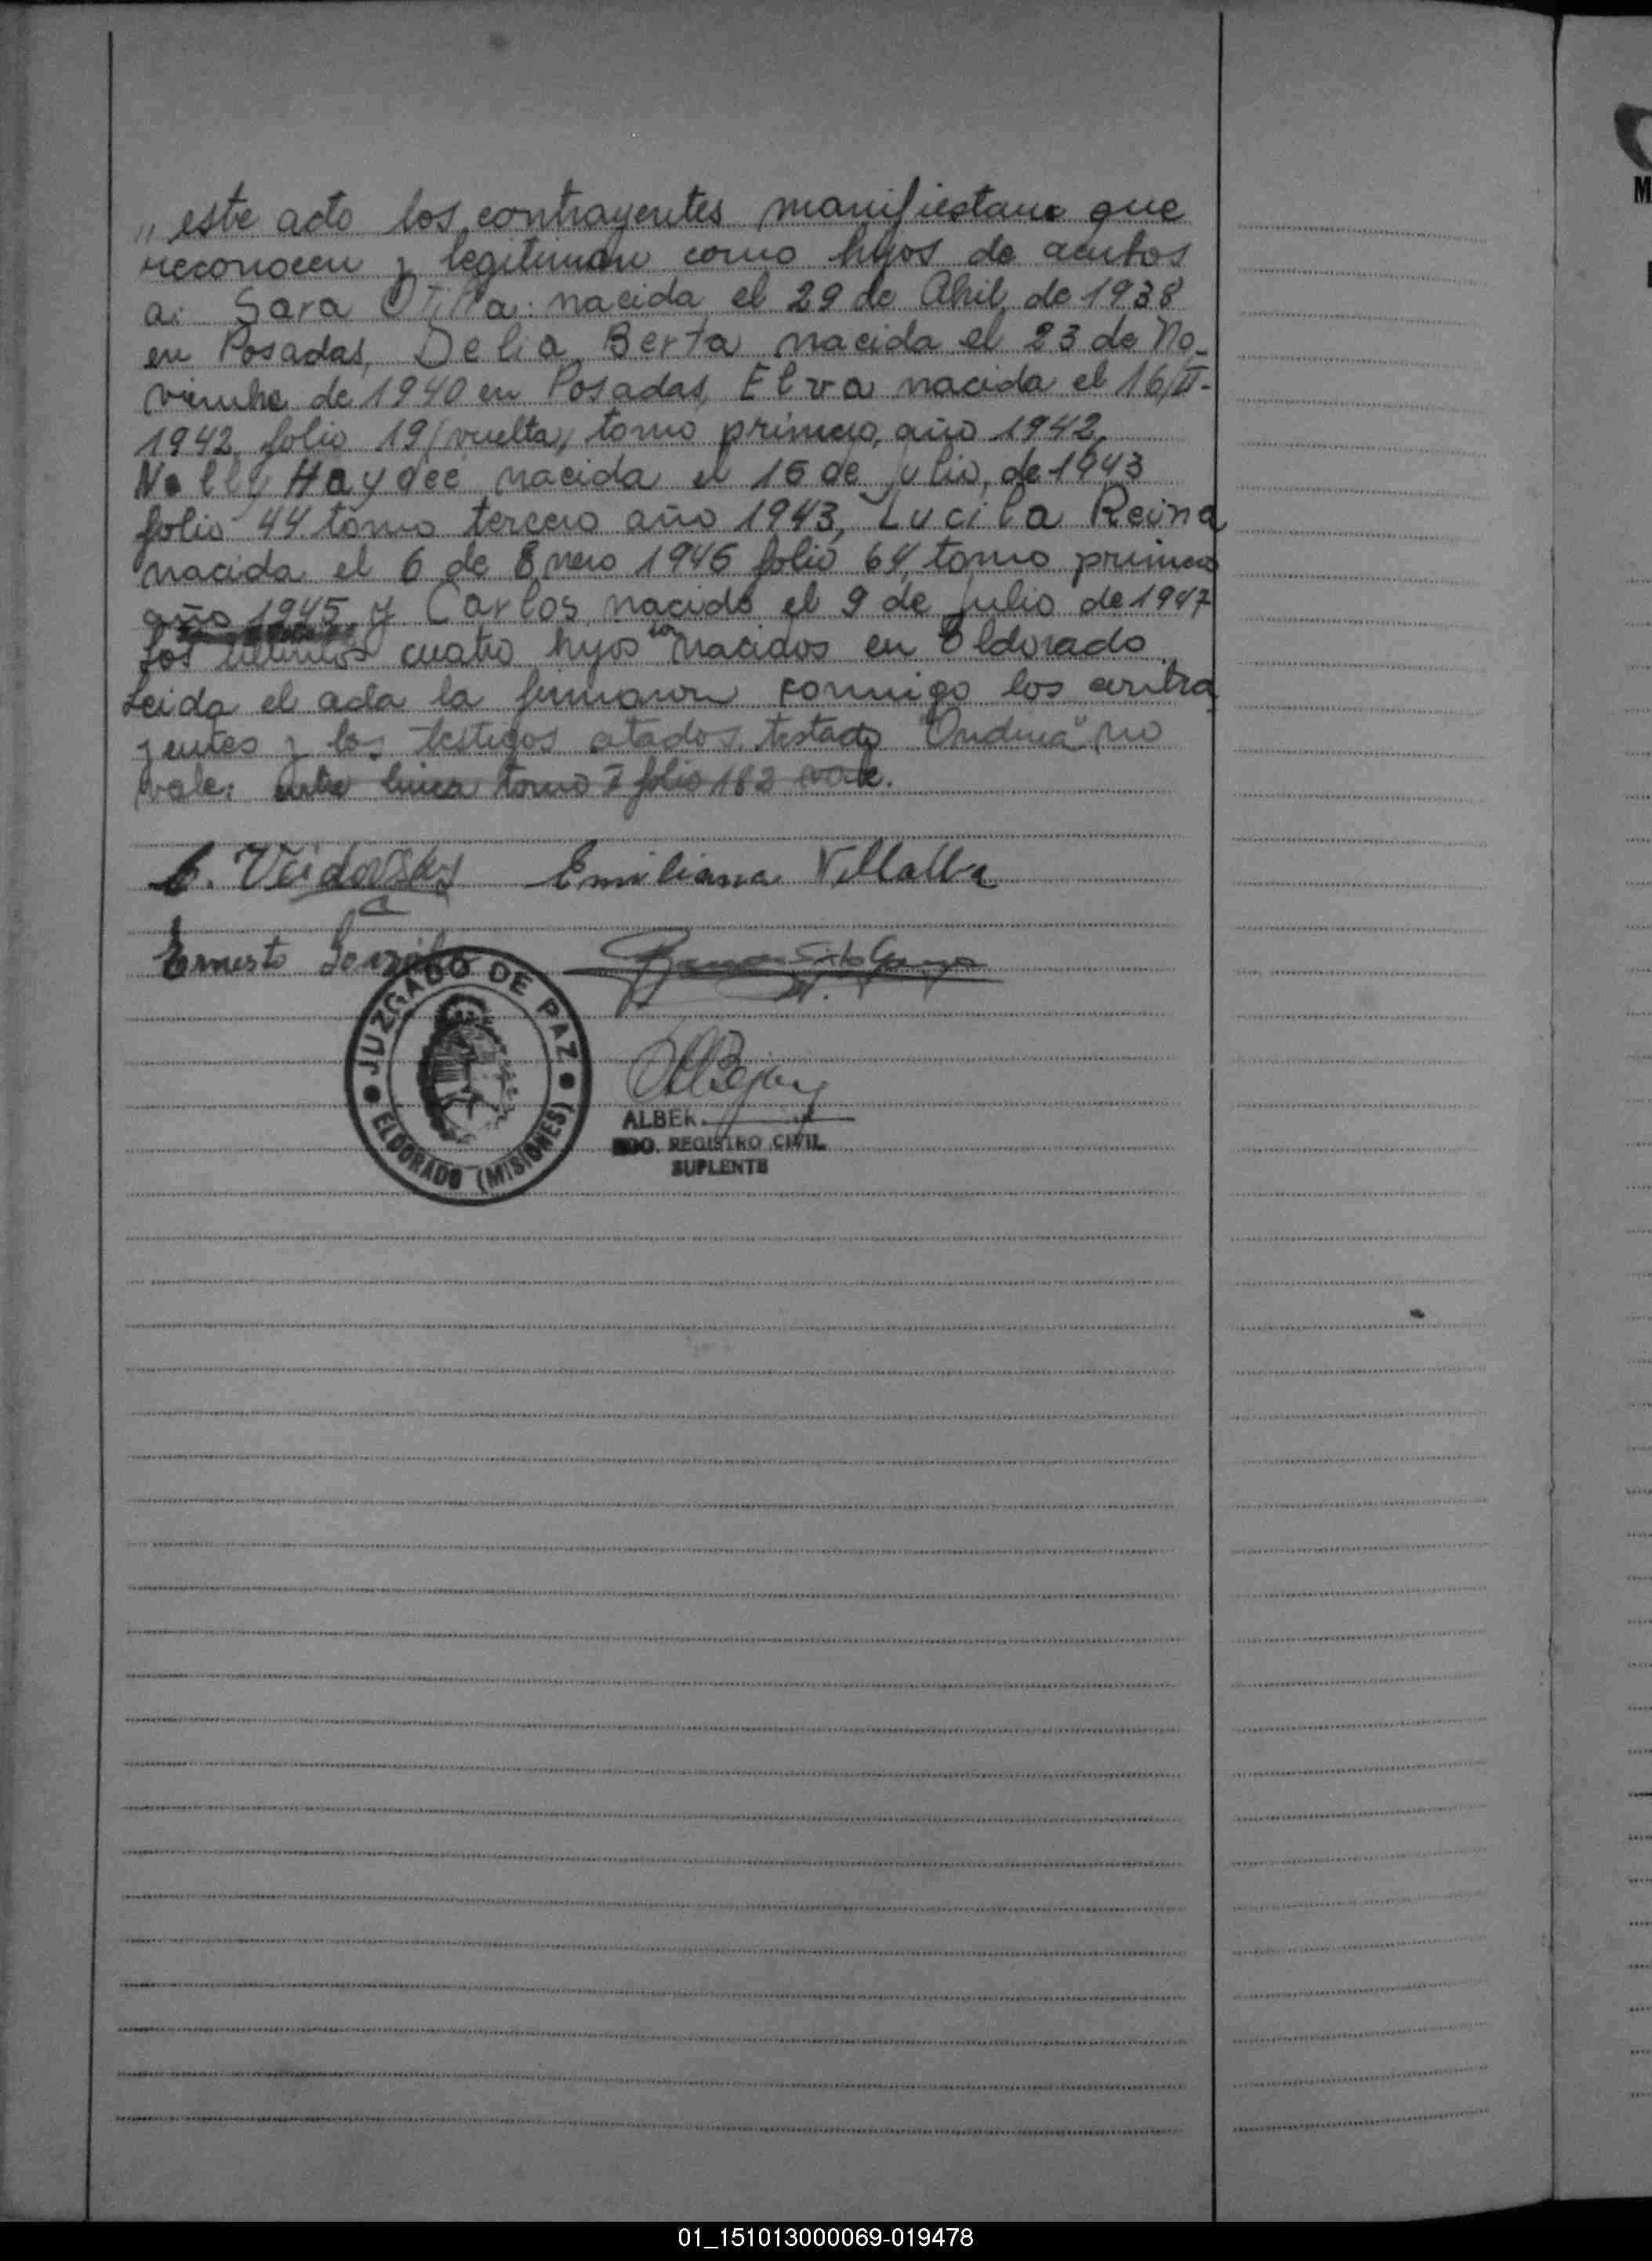 ,, este acto los contrayentes manifiestan que
reconocen y legitiman como hijos de ambos
a: Sara Otilia: nacida el 29 de Abril de 1938
en Posadas, Delia Berta nacida el 23 de No-
viembre de 1940 en Posadas, Elva nacida el 16/II-
1942 folio 19 (vuelta), tomo primero, año 1942,
Nelly Haydee nacida el 15 de Julio, de 1943
folio 44 tomo tercero año 1943, Lucila Reina
nacida el 6 de Enero 1945 folio 64, tomo primero
año 1945 y Carlos nacido el 9 de Julio de 1947
los cuatro hijos nacidos en Eldorado
Leida el acta la firmaron conmigo los contra
yentes y los testigos citados. testado "Ondina" no
vale: entre linea tomo I folio 182 vale.
Emiliana Villalba
Ernesto
JUZGADO DE PAZ
ELDORADO (MISIONES)
ALBER
REGISTRO CIVIL
SUPLENTE
M
01_151013000069-019478